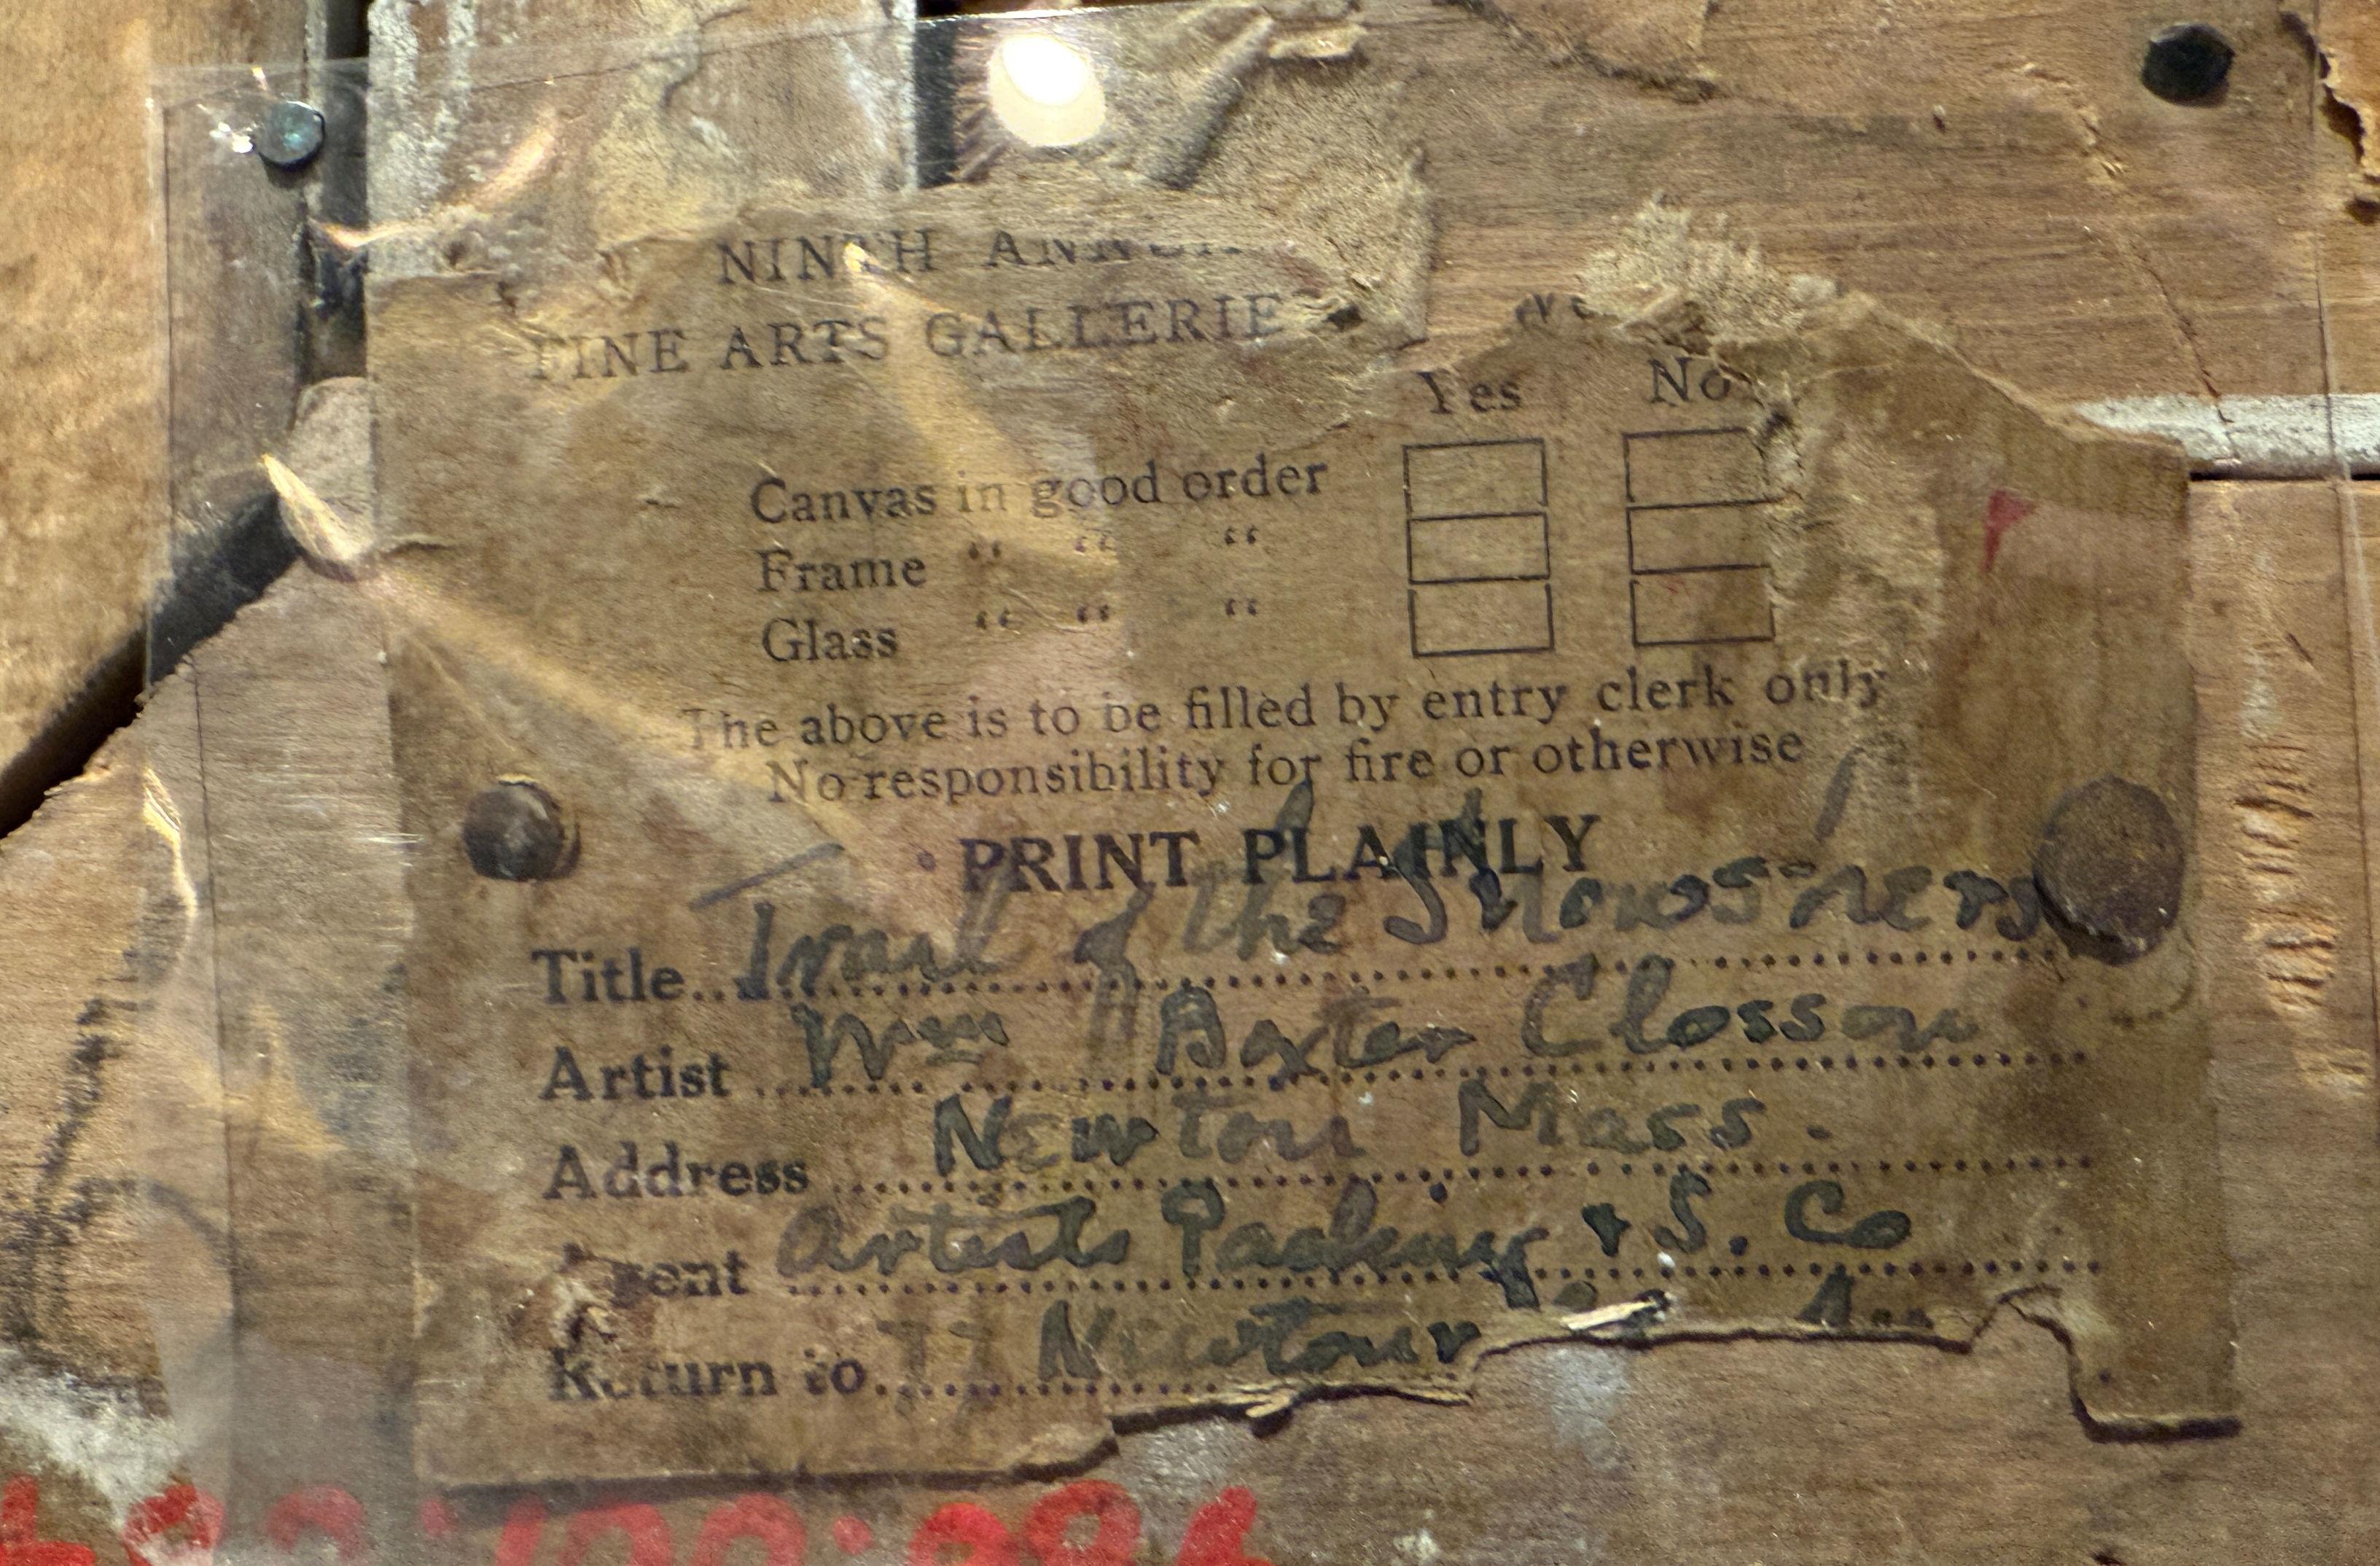 NINTH ANNUAL
FINE ARTS GALLERIES
Yes No
Canvas in good order
Frame “ “ “
Glass “ “ “
The above is to be filled by entry clerk only
No responsibility for fire or otherwise
PRINT PLAINLY
Title Trail of the
Artist Wm Baxter Closson
Address Newton Mass.
Agent Artists Packing & S. Co
Return to 77 Newtonv